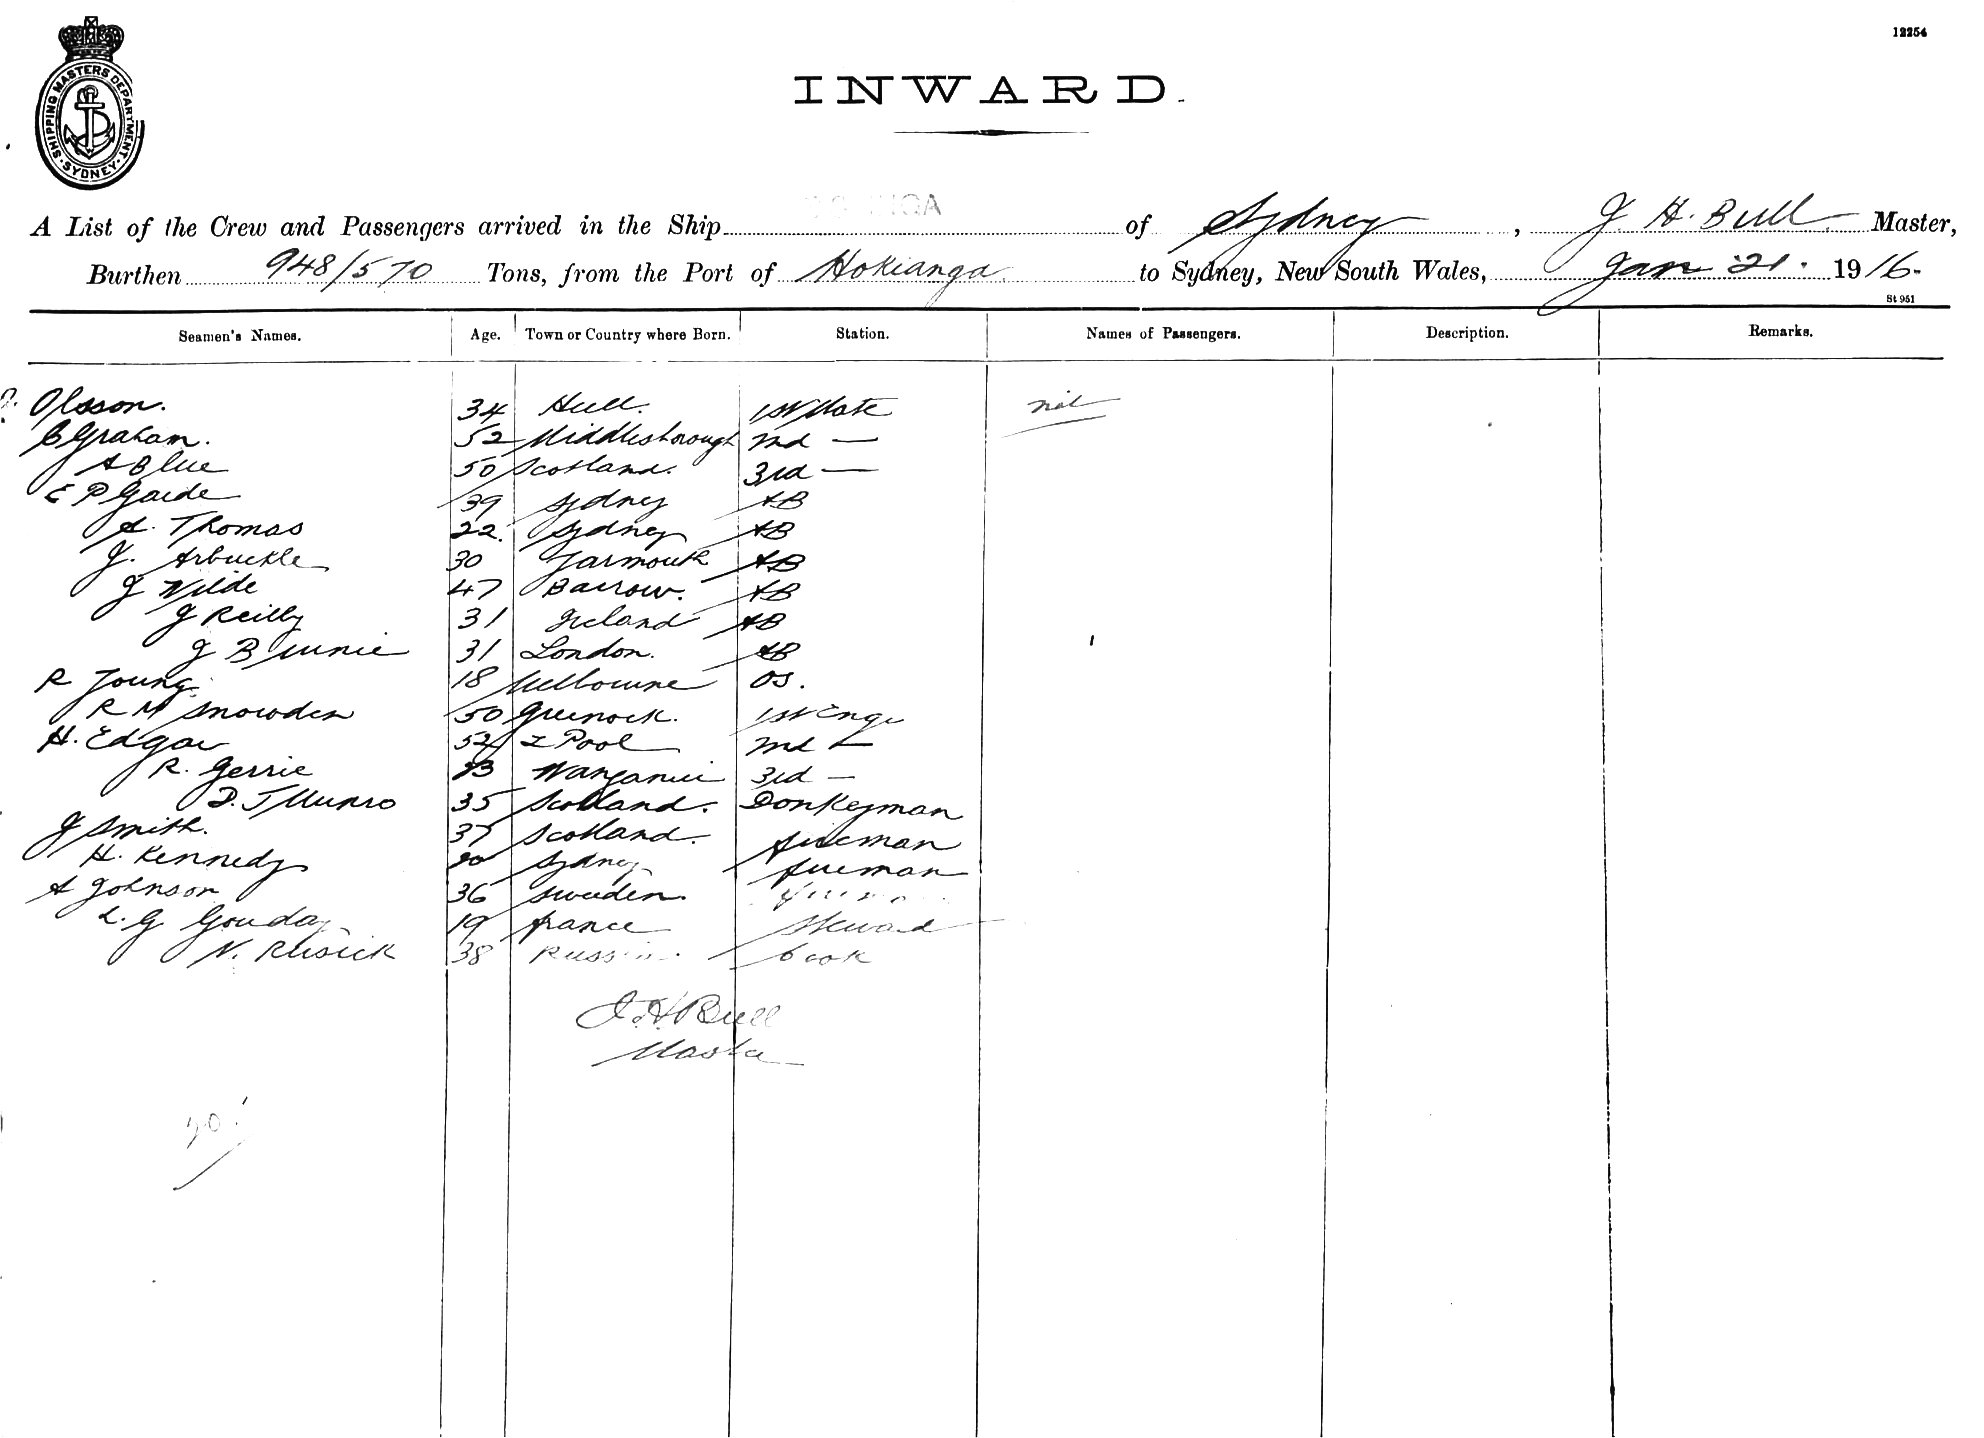 12254
SHIPPING MASTERS DEPARTMENT. SYDNEY
INWARD.
A List of the Crew and Passengers arrived in the Ship of Sydney, J H. Bull Master,
Burthen 948/570 Tons, from the Port of Hokianga to Sydney, New South Wales, Jan 21. 1916.
St 951
Seamen's Names. Age. Town or Country where Born. Station. Names of Passengers. Description. Remarks.
Olsson. 34 Hull. 1st Mate nil
Graham. 52 Middlesborough 2nd —
A Blue 50 Scotland. 3rd —
E P Gaide 39 Sydney AB
A. Thomas 22. Sydney AB
J. Arbuckle 30 Yarmouth AB
J Wilde 47 Barrow. AB
J Reilly 31 Ireland AB
J 31 London. AB
R Young. 18 Melbourne OS.
R M Snowden 50 Greenock. 1st Engr
H. Edgar 52 L Pool 2nd —
R. Gerrie Wanganui 3rd —
D. J Munro 35 Scotland. Donkeyman
J Smith. 37 Scotland. fireman
H. Kennedy Sydney fireman
A Johnson 36 Sweden.
L. G Gouday 19 France Steward
N. Rusick 38 Russia. Cook
J. H Bull
Master